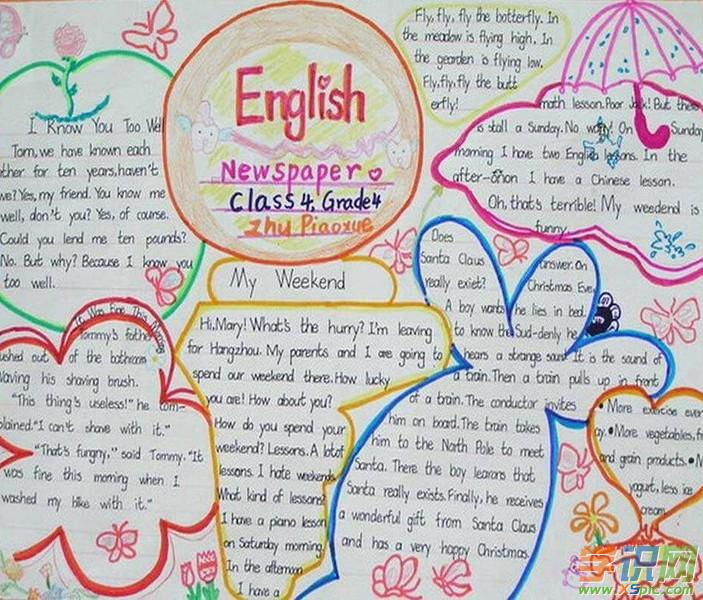 English
Newspaper
Class 4. Grade 4
Zhu Piaoxue
I Know You Too Well
Tom, we have known each
other for ten years, haven't
we? Yes, my friend. You know me
well, don't you? Yes, of course.
Could you lend me ten pounds?
No. But why? Because I know you
too well.
It Was Fine This Morning
Tommy's father
ushed out of the bathroom
Waving his shaving brush.
"This thing's useless!" he com-
plained. "I can't shave with it."
"That's fungny," said Tommy. "It
was fine this morning when I
washed my bike with it."
My Weekend
Hi, Mary! What's the hurry? I'm leaving
for Hangzhou. My parents and I are going to
spend our weekend there. How lucky
you are! How about you?
How do you spend your
weekend? Lessons. A lot of
lessons. I hate weekends
What kind of lessons
I have a piano lesson
on Saturday morning.
In the afternoon
I have a
math lesson. Poor Jack! But there
is stall a Sunday. No worry! On Sunday
morning I have two English lessons. In the
after-onon I have a Chinese lesson.
Oh, that's terrible! My weedend is
funny.
Fly, fly, fly the botterfly. In
the meadow is flying high. In
the gearden is flying low.
Fly, fly, fly the butt
erfly!
Does
Santa Claus
really exiet?
A boy wants
to know the
answer. On
Christmas Eve,
he lies in bed.
Sud-denly he
hears a strange sound. It is the sound of
a train. Then a train pulls up in front
of a train. The conductor invites
him on board. The train takes
him to the North Pole to meet
Santa. There the boy learons that
Santa really exists. Finally, he receives
a wonderful gift from Santa Claus
and has a very happy Christmas.
• More exercise ever
ay. • More vegetables, fr
and grain products. • M
yogurt, less ice
cream.
学识网
www.XSpic.com